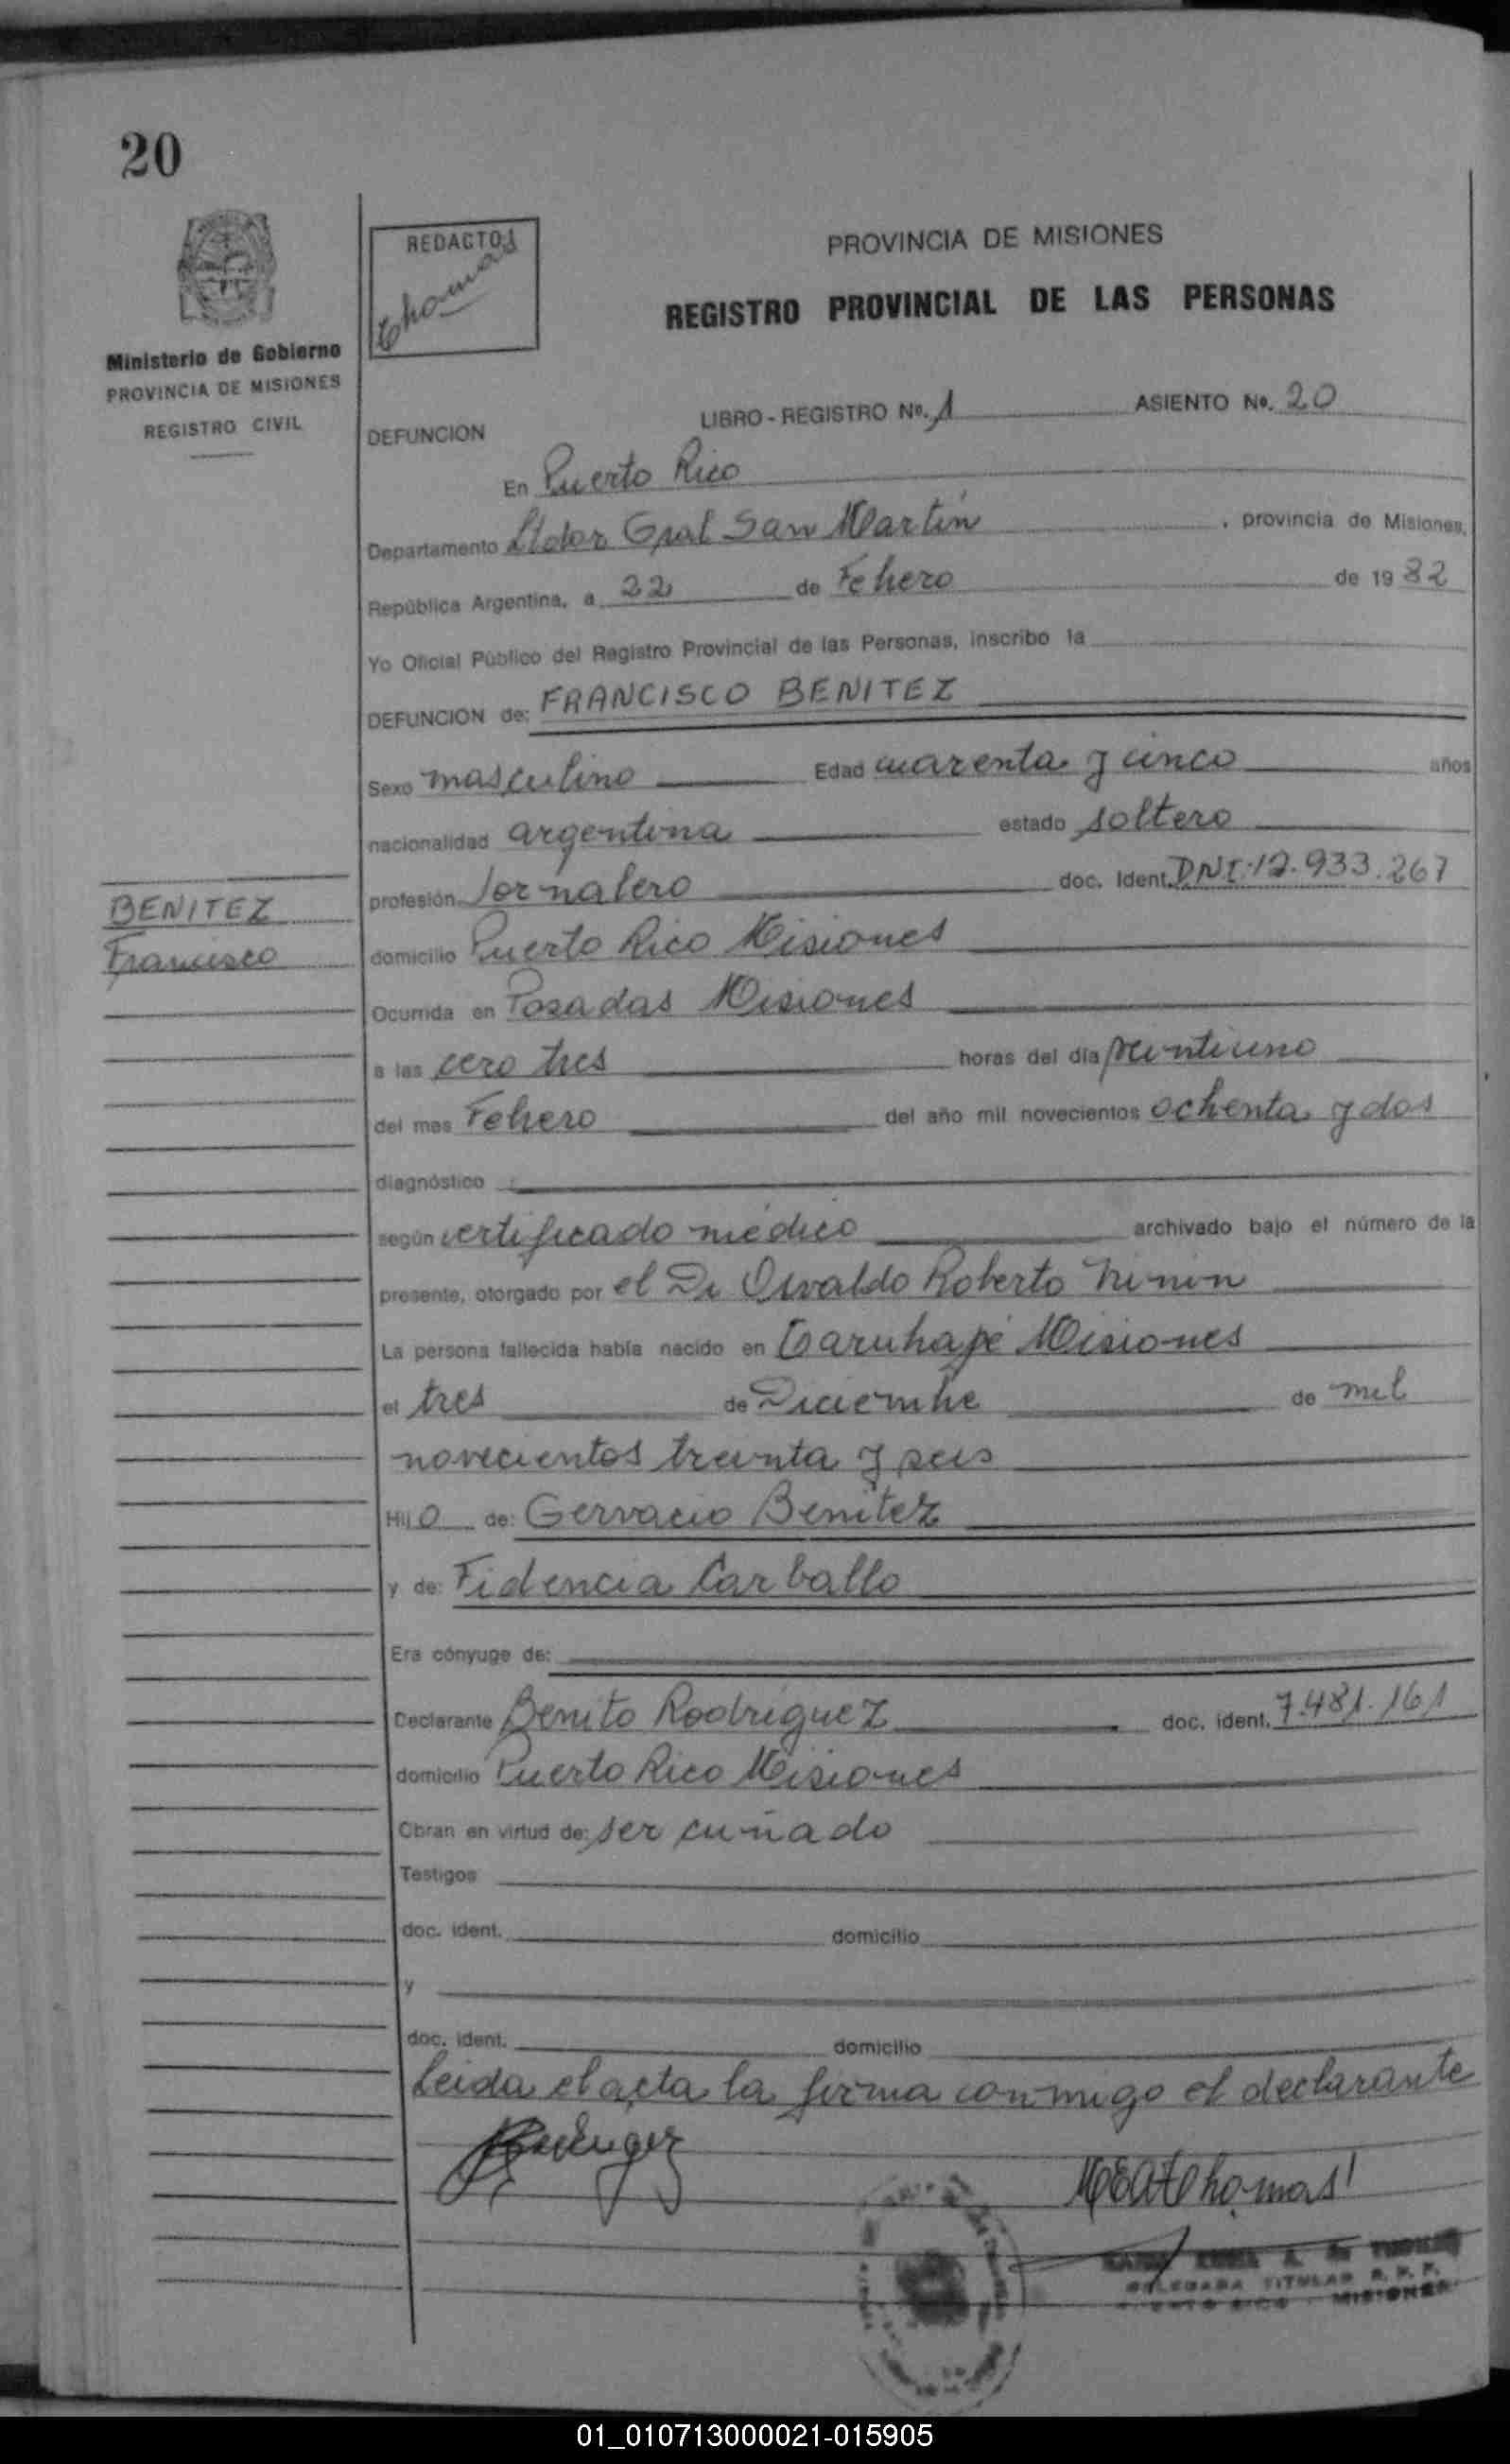 20
REDACTOJ
Thomas
PROVINCIA DE MISIONES
REGISTRO PROVINCIAL DE LAS PERSONAS
Ministerio de Gobierno
PROVINCIA DE MISIONES
REGISTRO CIVIL
DEFUNCION LIBRO - REGISTRO Nº. 1 ASIENTO Nº. 20
En Puerto Rico
Departamento Ltdor Gral San Martín , provincia de Misiones,
República Argentina, a 22 de Febrero de 19 82
Yo Oficial Público del Registro Provincial de las Personas, inscribo la
DEFUNCION de: FRANCISCO BENITEZ
Sexo masculino Edad cuarenta y cinco años
nacionalidad argentina estado soltero
profesión Jornalero doc. Ident. DNI. 12.933.267
BENITEZ
Francisco
domicilio Puerto Rico Misiones
Ocurrida en Posadas Misiones
a las cero tres horas del día veintiuno
del mes Febrero del año mil novecientos ochenta y dos
diagnóstico
según certificado médico archivado bajo el número de la
presente, otorgado por el Dr Osvaldo Roberto
La persona fallecida había nacido en Caruhapé Misiones
el tres de Diciembre de mil
novecientos treinta y seis
Hijo de: Gervacio Benitez
y de: Fidencia Carballo
Era cónyuge de:
Declarante Benito Rodriguez doc. ident. 7.481.161
domicilio Puerto Rico Misiones
Obran en virtud de: ser cuñado
Testigos
doc. ident. domicilio
y
doc. ident. domicilio
Leida el acta la firma conmigo el declarante
DELEGADA TITULAR R. P. P.
PUERTO RICO - MISIONES
01_010713000021-015905